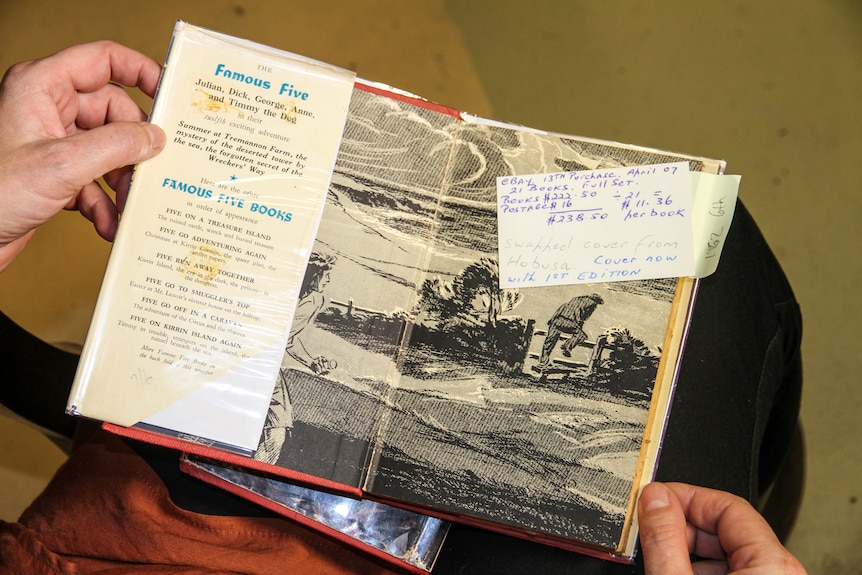 THE
Famous Five
Julian, Dick, George, Anne,
and Timmy the Dog
in their
twelfth
exciting adventure
Summer at Tremannon Farm, the
mystery of the deserted tower by
the sea, the forgotten secret of the
Wreckers' Way
Here are the other
FAMOUS FIVE BOOKS
in order of appearance
FIVE ON A TREASURE ISLAND
The ruined castle, wreck and buried treasure
FIVE GO ADVENTURING AGAIN
Christmas at Kirrin Cottage, the secret plan, the
papers
FIVE RUN AWAY TOGETHER
Kirrin Island, the cry in the dark, the prisoner in
the dungeon
FIVE GO TO SMUGGLER'S TOP
Easter at Mr. Lenoir's sinister house on the hilltop,
FIVE GO OFF IN A CARAVAN
The adventure of the Circus and the thieves
FIVE ON KIRRIN ISLAND AGAIN
Timmy in trouble, strangers on the Island, the
tunnel beneath the sea
More Famous Five Books on
the back fold of this wrapper
EBAY 13TH Purchase. April 07
21 BOOKS. Full SET.
BOOKS $222.50 ÷ 21 =
POSTAGE $16 $11.36
$238.50 per book
Swapped cover from
Hobusa Cover now
with 1ST EDITION
1962 6th